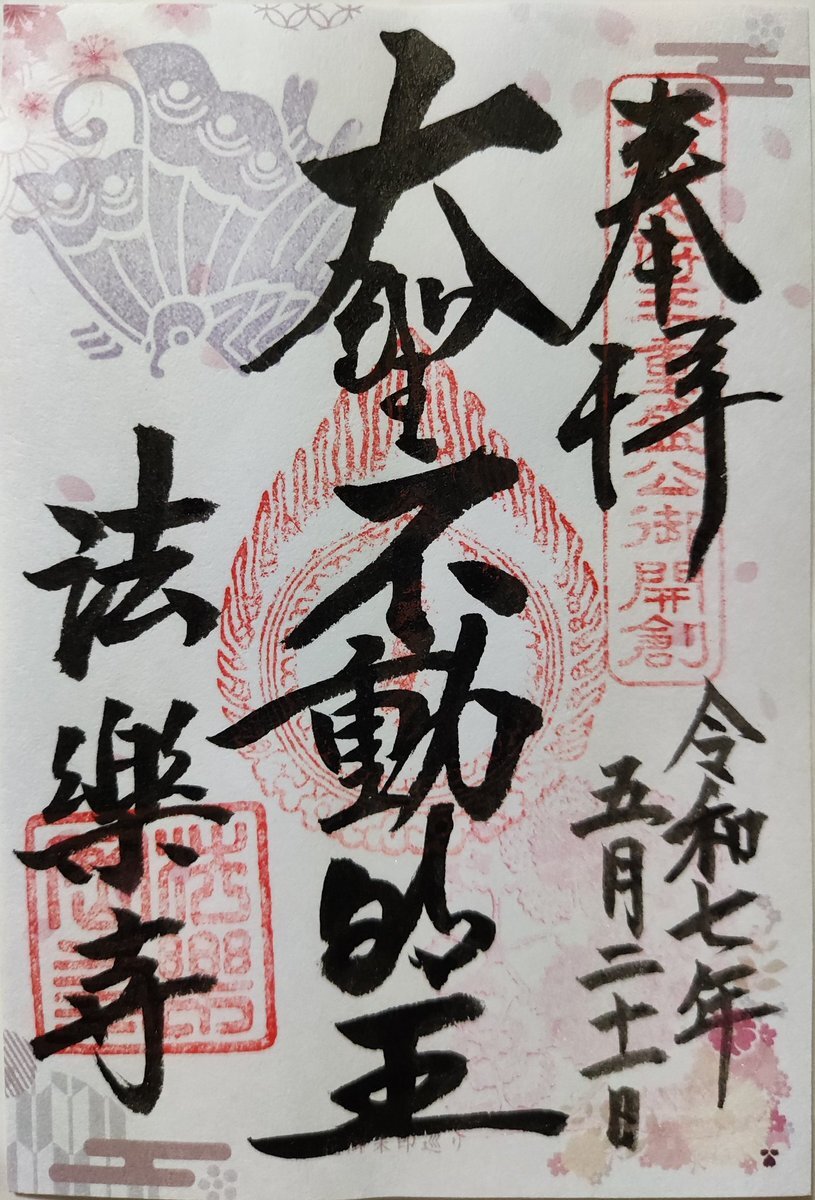 奉拝
重盛公御開創
令和七年
五月二十一日
大聖不動明王
法樂寺
御朱印巡り